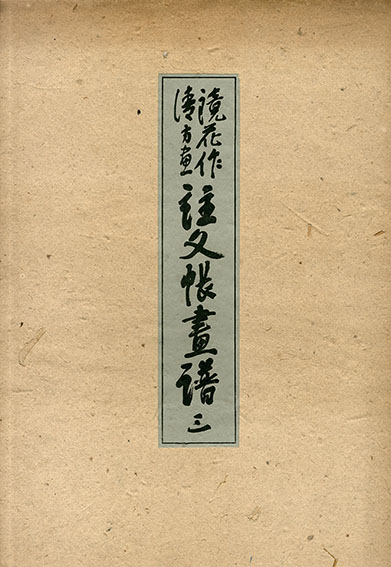 鏡花作
清方画
註文帳畫譜 三